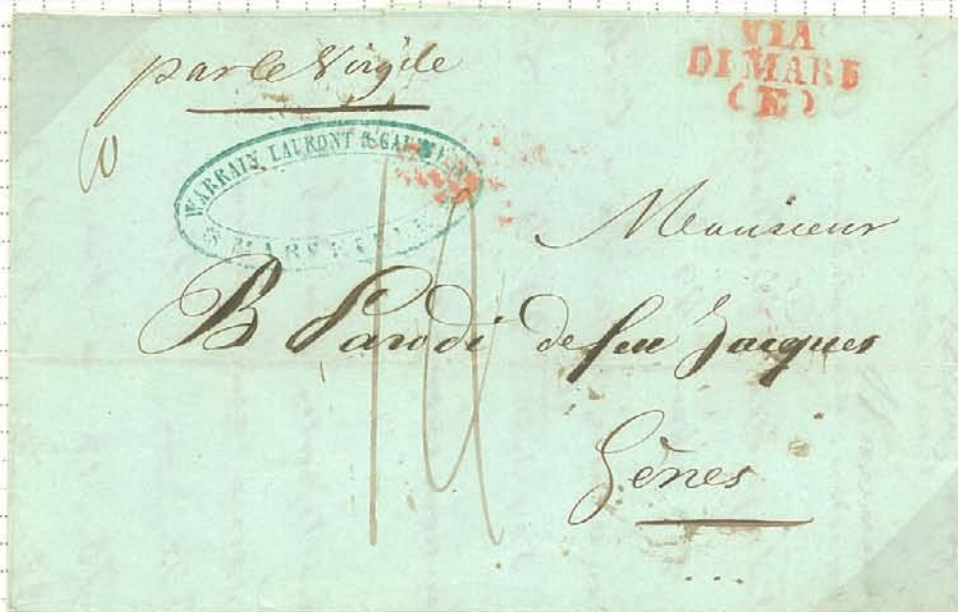 par le Virgile
VIA
DI MARE
(E)
WARRAIN LAURONT &
MARSEILLE
14
Monsieur
B Parodi de feu Jacques
Gênes